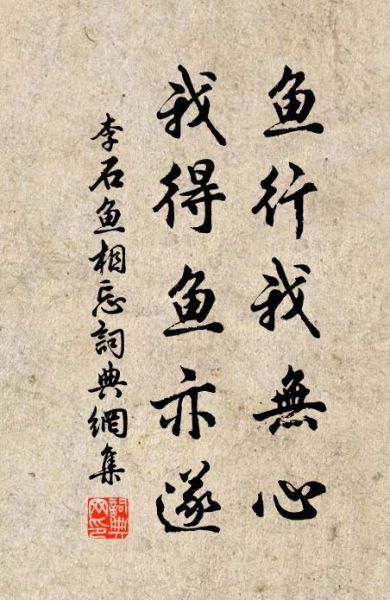 鱼行我無心
我得鱼亦遂
李石鱼相忘詞典網集
詞典网印